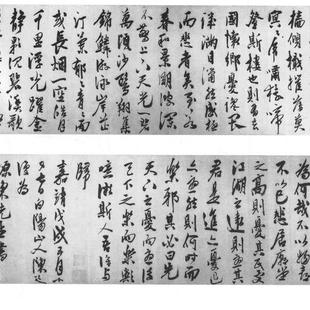 檣傾楫摧薄暮
冥冥虎嘯猿啼
登斯樓也則有去
國懷鄉憂讒畏
譏滿目蕭然感極
而悲者矣至若
春和景明波瀾
不驚上下天光一碧
萬頃沙鷗翔集
錦鱗游泳岸芷
汀蘭郁郁青青而
或長煙一空皓月
千里浮光躍金
靜影沉璧漁歌
為何哉不以物喜
不以己悲居廟堂
之高則憂其民處
江湖之遠則憂其
君是進亦憂退
亦憂然則何時而
樂邪其必曰先
天下之憂而憂後
天下之樂而樂歟
噫微斯人吾誰與
歸
嘉靖戊戌五月十
白陽山人陳
東先生書